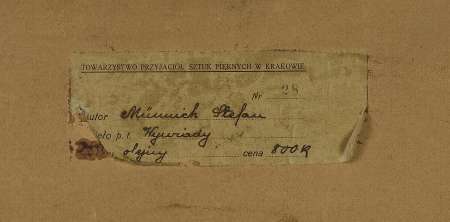 TOWARZYSTWO PRZYJACIÓŁ SZTUK PIĘKNYCH W KRAKOWIE
Nr 28
utor Münnich Stefan
eło p. t. Wywiady
olejny cena 800 K